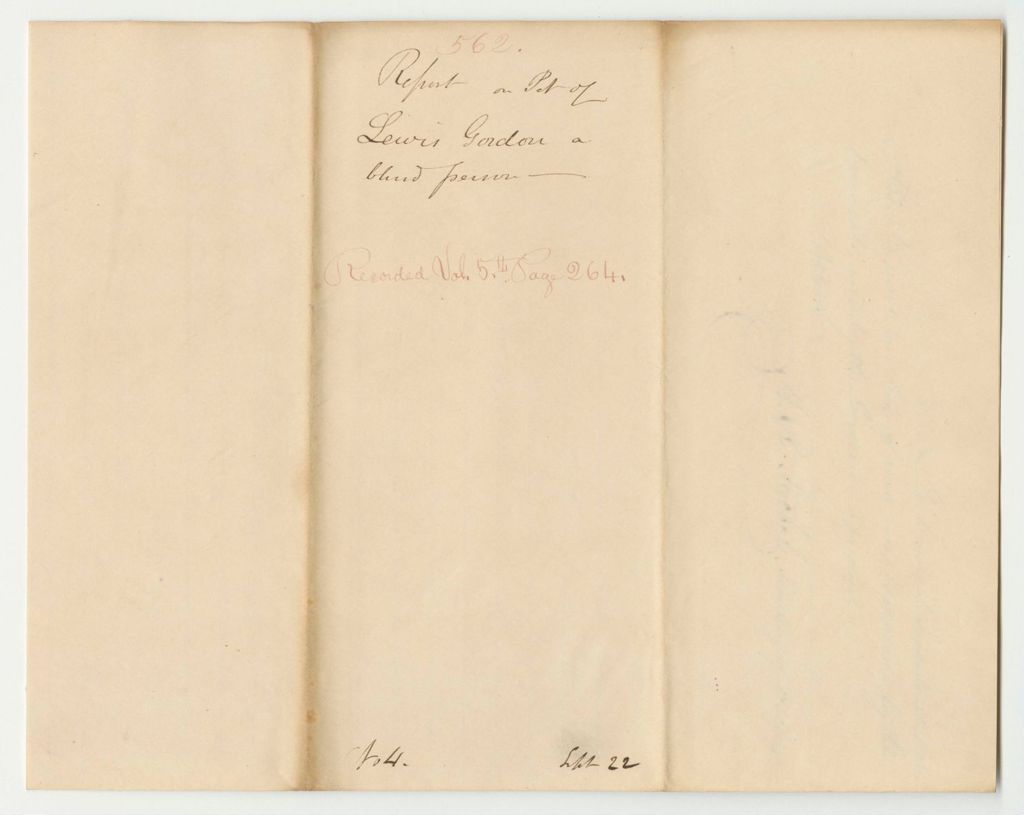 562.
Report on Pet of
Lewis Gordon a
blind person —
Recorded Vol. 5.th Page 264.
No 4.
Sept 22